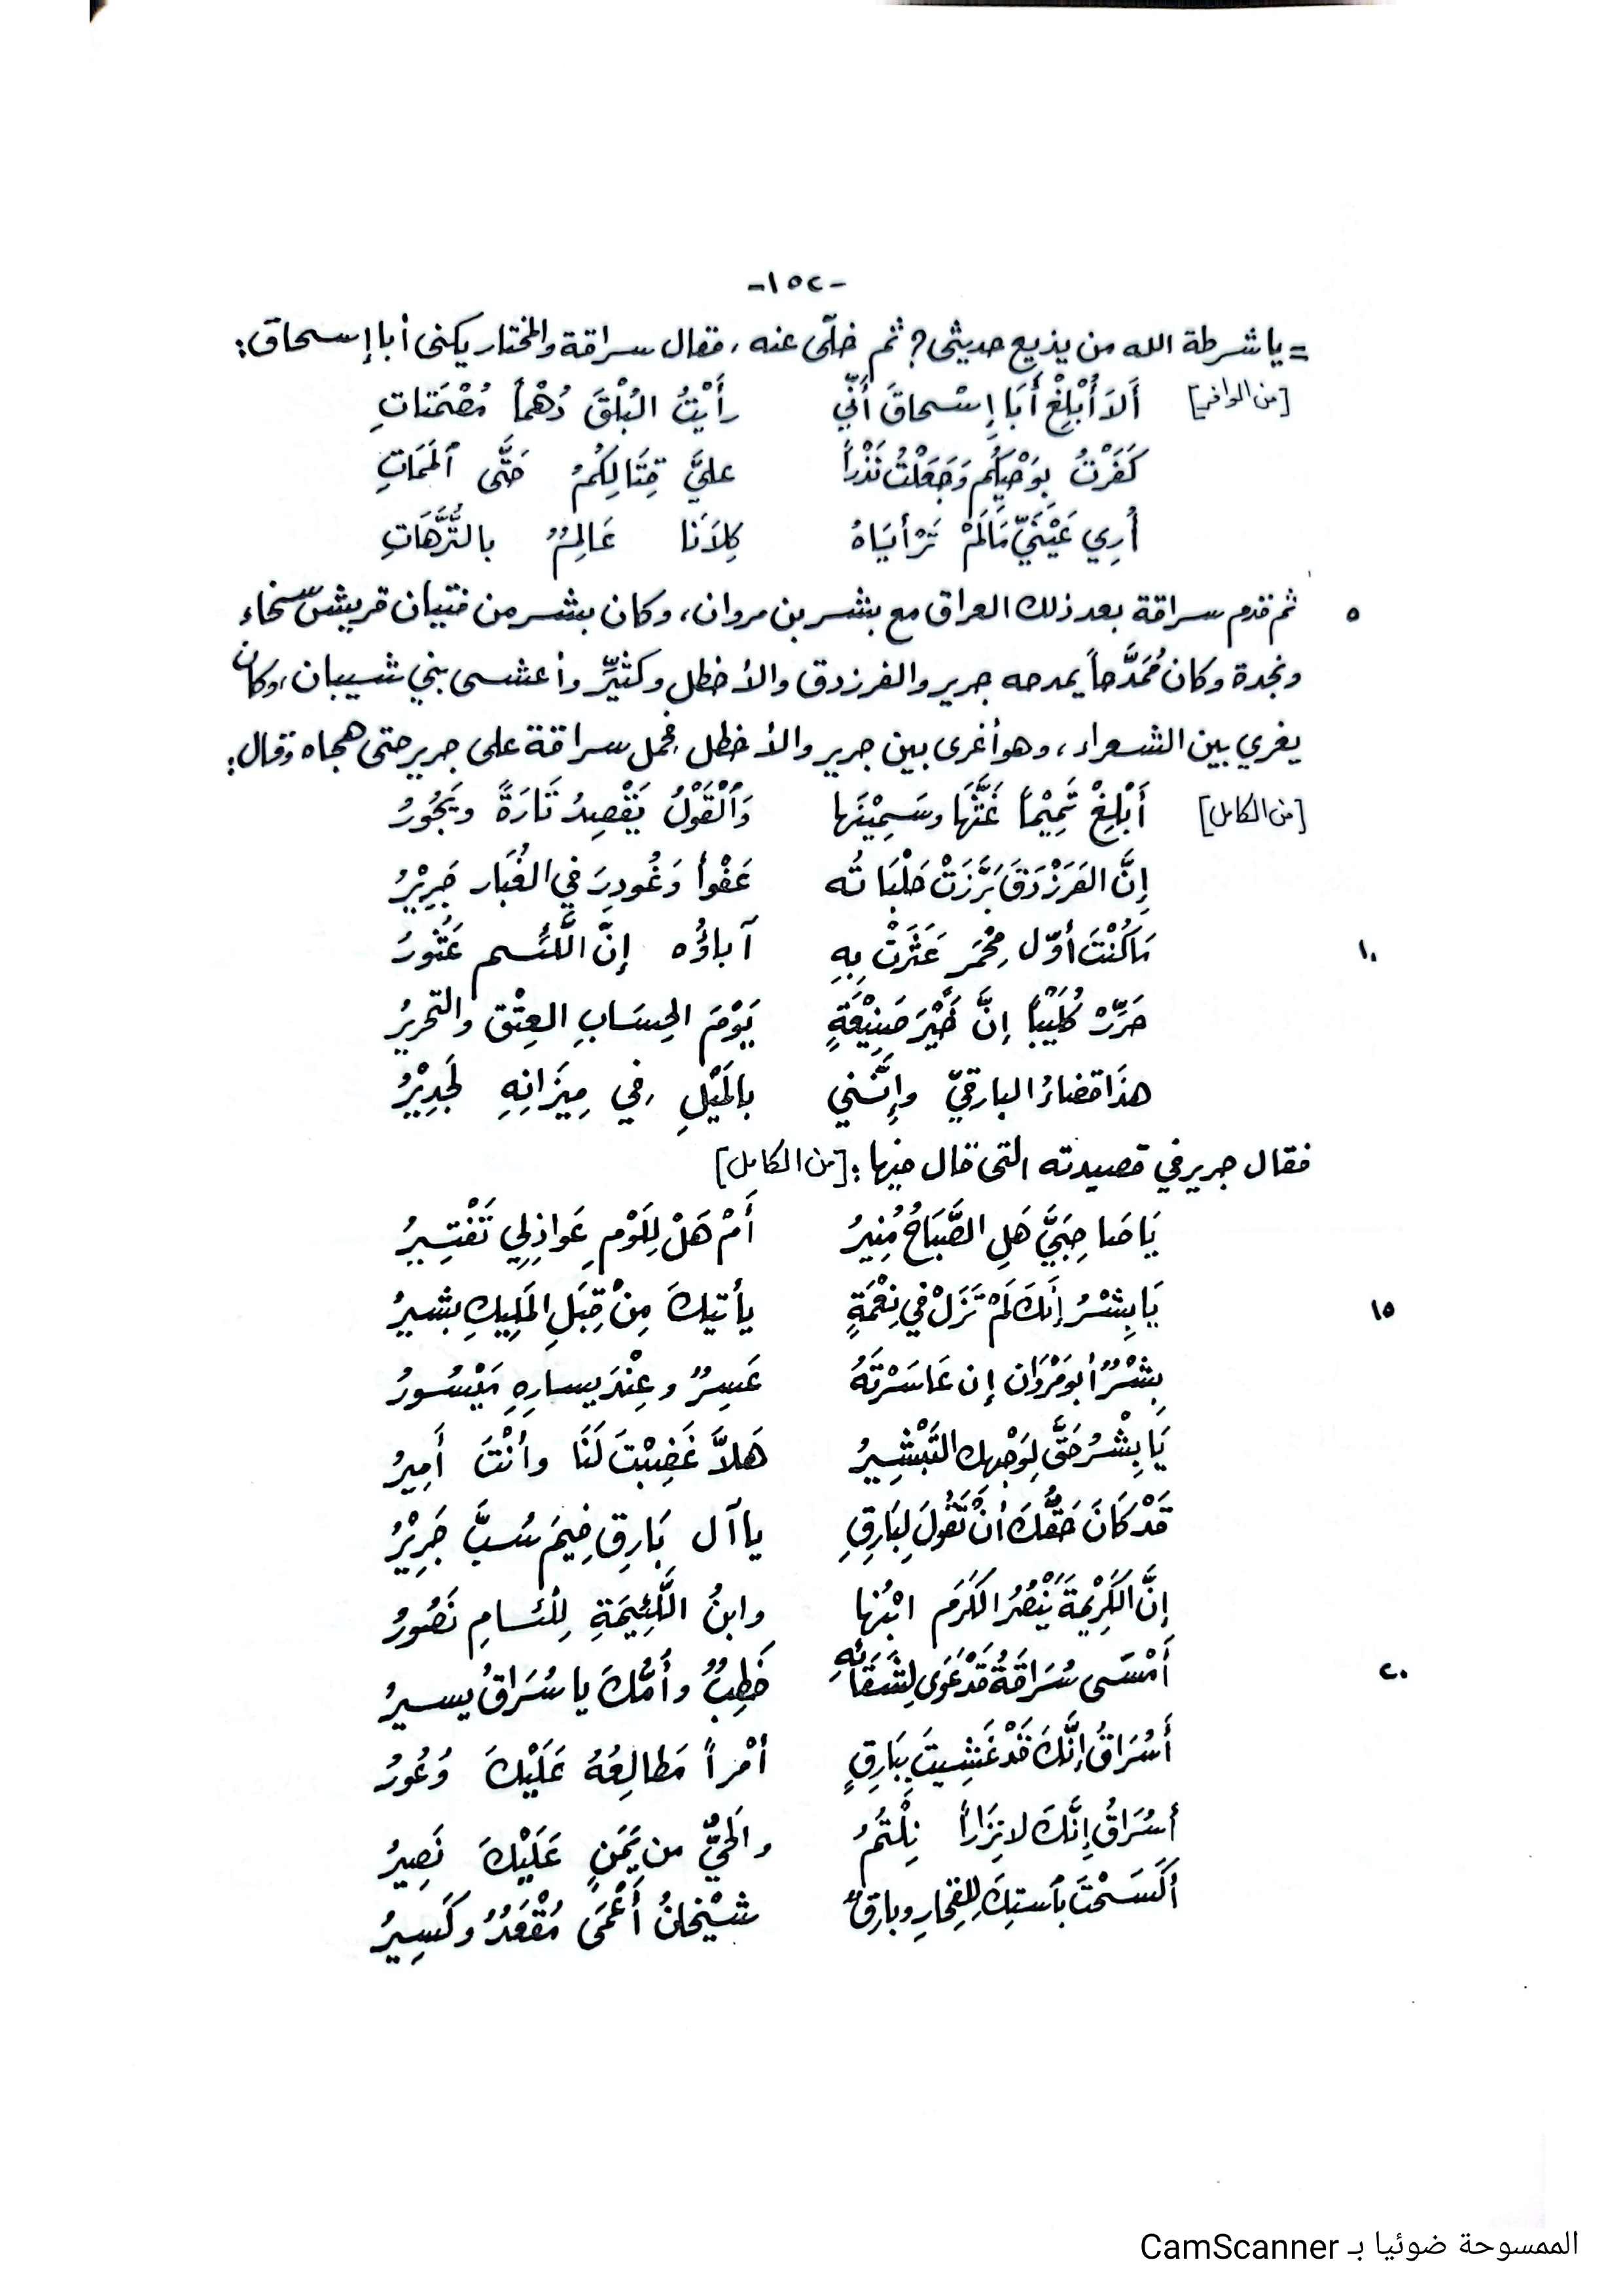 -١٥٢-
= يا شرطة الله من يذيع حديثي؟ ثم خلّى عنه، فقال سراقة والمختار يكنى أبا إسحاق:
[من الوافر] أَلاَ أُبْلِغْ أَبَا إِسْحاقَ أَنِّي رأَيْتُ البُلْقَ دُهْماً مُصْمَتاتِ
كَفَرْتُ بِوَحْيِكُم وَجَعَلْتُ نَذْراً عليَّ قِتَالَكُمُ حَتَّى ٱلمَمَاتِ
أُرِي عَيْنَيَّ مَا لَمْ تَرْأَيَاهُ كِلاَنَا عَالِمٌ بالتُّرَّهَاتِ
٥ ثم قدم سراقة بعد ذلك العراق مع بشر بن مروان، وكان بشر من فتيان قريش سخاء
ونجدة وكان مُمَدَّحاً يمدحه جرير والفرزدق والأخطل وكثيِّر وأعشى بني شيبان، وكان
يغري بين الشعراء، وهو أغرى بين جرير والأخطل فحمل سراقة على جرير حتى هجاه وقال:
[من الكامل] أَبْلِغْ تَمِيْماً غَثَّهَا وسَمِيْنَها وَٱلْقَوْلُ يَقْصِدُ تَارَةً ويَجُورُ
إِنَّ الفَرَزْدَقَ بَرَّزَتْ حَلْبَاتُه عَفْواً وَغُودِرَ في الغُبَار جَرِيْرُ
١٠ مَا كُنْتَ أوّل مِحْمَرٍ عَثَرَتْ بِهِ آباؤُه إِنَّ اللَّئِيم عَثُورُ
حَرِّرْ كُلَيْباً إنَّ خَيْرَ صَنِيْعَةٍ يَوْمَ الحِسَابِ العِتْق والتحريرُ
هذَا قضاءُ البارقيّ وإِنَّني بالمَيْلِ في مِيزَانِهِ لَجَدِيْرُ
فقال جرير في قصيدته التي قال فيها: [من الكامل]
يَا صَاحِبَيَّ هَلِ الصَّبَاحُ مُنِيرُ أَمْ هَلْ لِلَوْمِ عَواذِلِي تَفْتِيرُ
١٥ يَا بِشْرُ إنَكَ لَمْ تَزَلْ في نِعْمَةٍ يأتيكَ مِنْ قِبَلِ المَلِيكِ بشيرُ
بِشْرٌ أبو مَرْوَان إن عَاسَرْتَهُ عَسِرٌ وعِنْدَ يسارِهِ مَيْسُورُ
يَا بِشْرُ حَقَّ لِوَجْهِكَ التَّبْشِيرُ هَلاَّ غَضِبْتَ لَنَا وأنْتَ أَمِيرُ
قَدْ كَانَ حَقُّكَ أنْ تَقُولَ لِبَارِقِ يا آل بَارِق فِيمَ سُبَّ جَرِيْرُ
إنَّ الكَرِيْمةَ يَنْصُرُ الكَرَمَ ابْنُها وابنُ اللَّئِيْمَةِ لِلِّئَامِ نَصُورُ
٢٠ أَمْسَى سُرَاقَةُ قَدْ عَوَى لِشَقَائِهِ خَطِبٌ وأُمُّكَ يا سُرَاقُ يسيرُ
أَسُرَاقُ إنَّكَ قَدْ غَشِيتَ بِبَارِقٍ أمْراً مَطالِعُهُ عَلَيْكَ وُعُورُ
أسُرَاقُ إنَّكَ لا نِزَاراً نِلْتُمُ والحَيُّ من يَمَنٍ عَلَيْكَ نَصِيرُ
أكَسَحْتَ بٱستِكَ لِلفِخَارِ وبارِقٌ شيْخانُ أَعْمَى مُقْعَدٌ وكَسِيرُ
الممسوحة ضوئيا بـ CamScanner